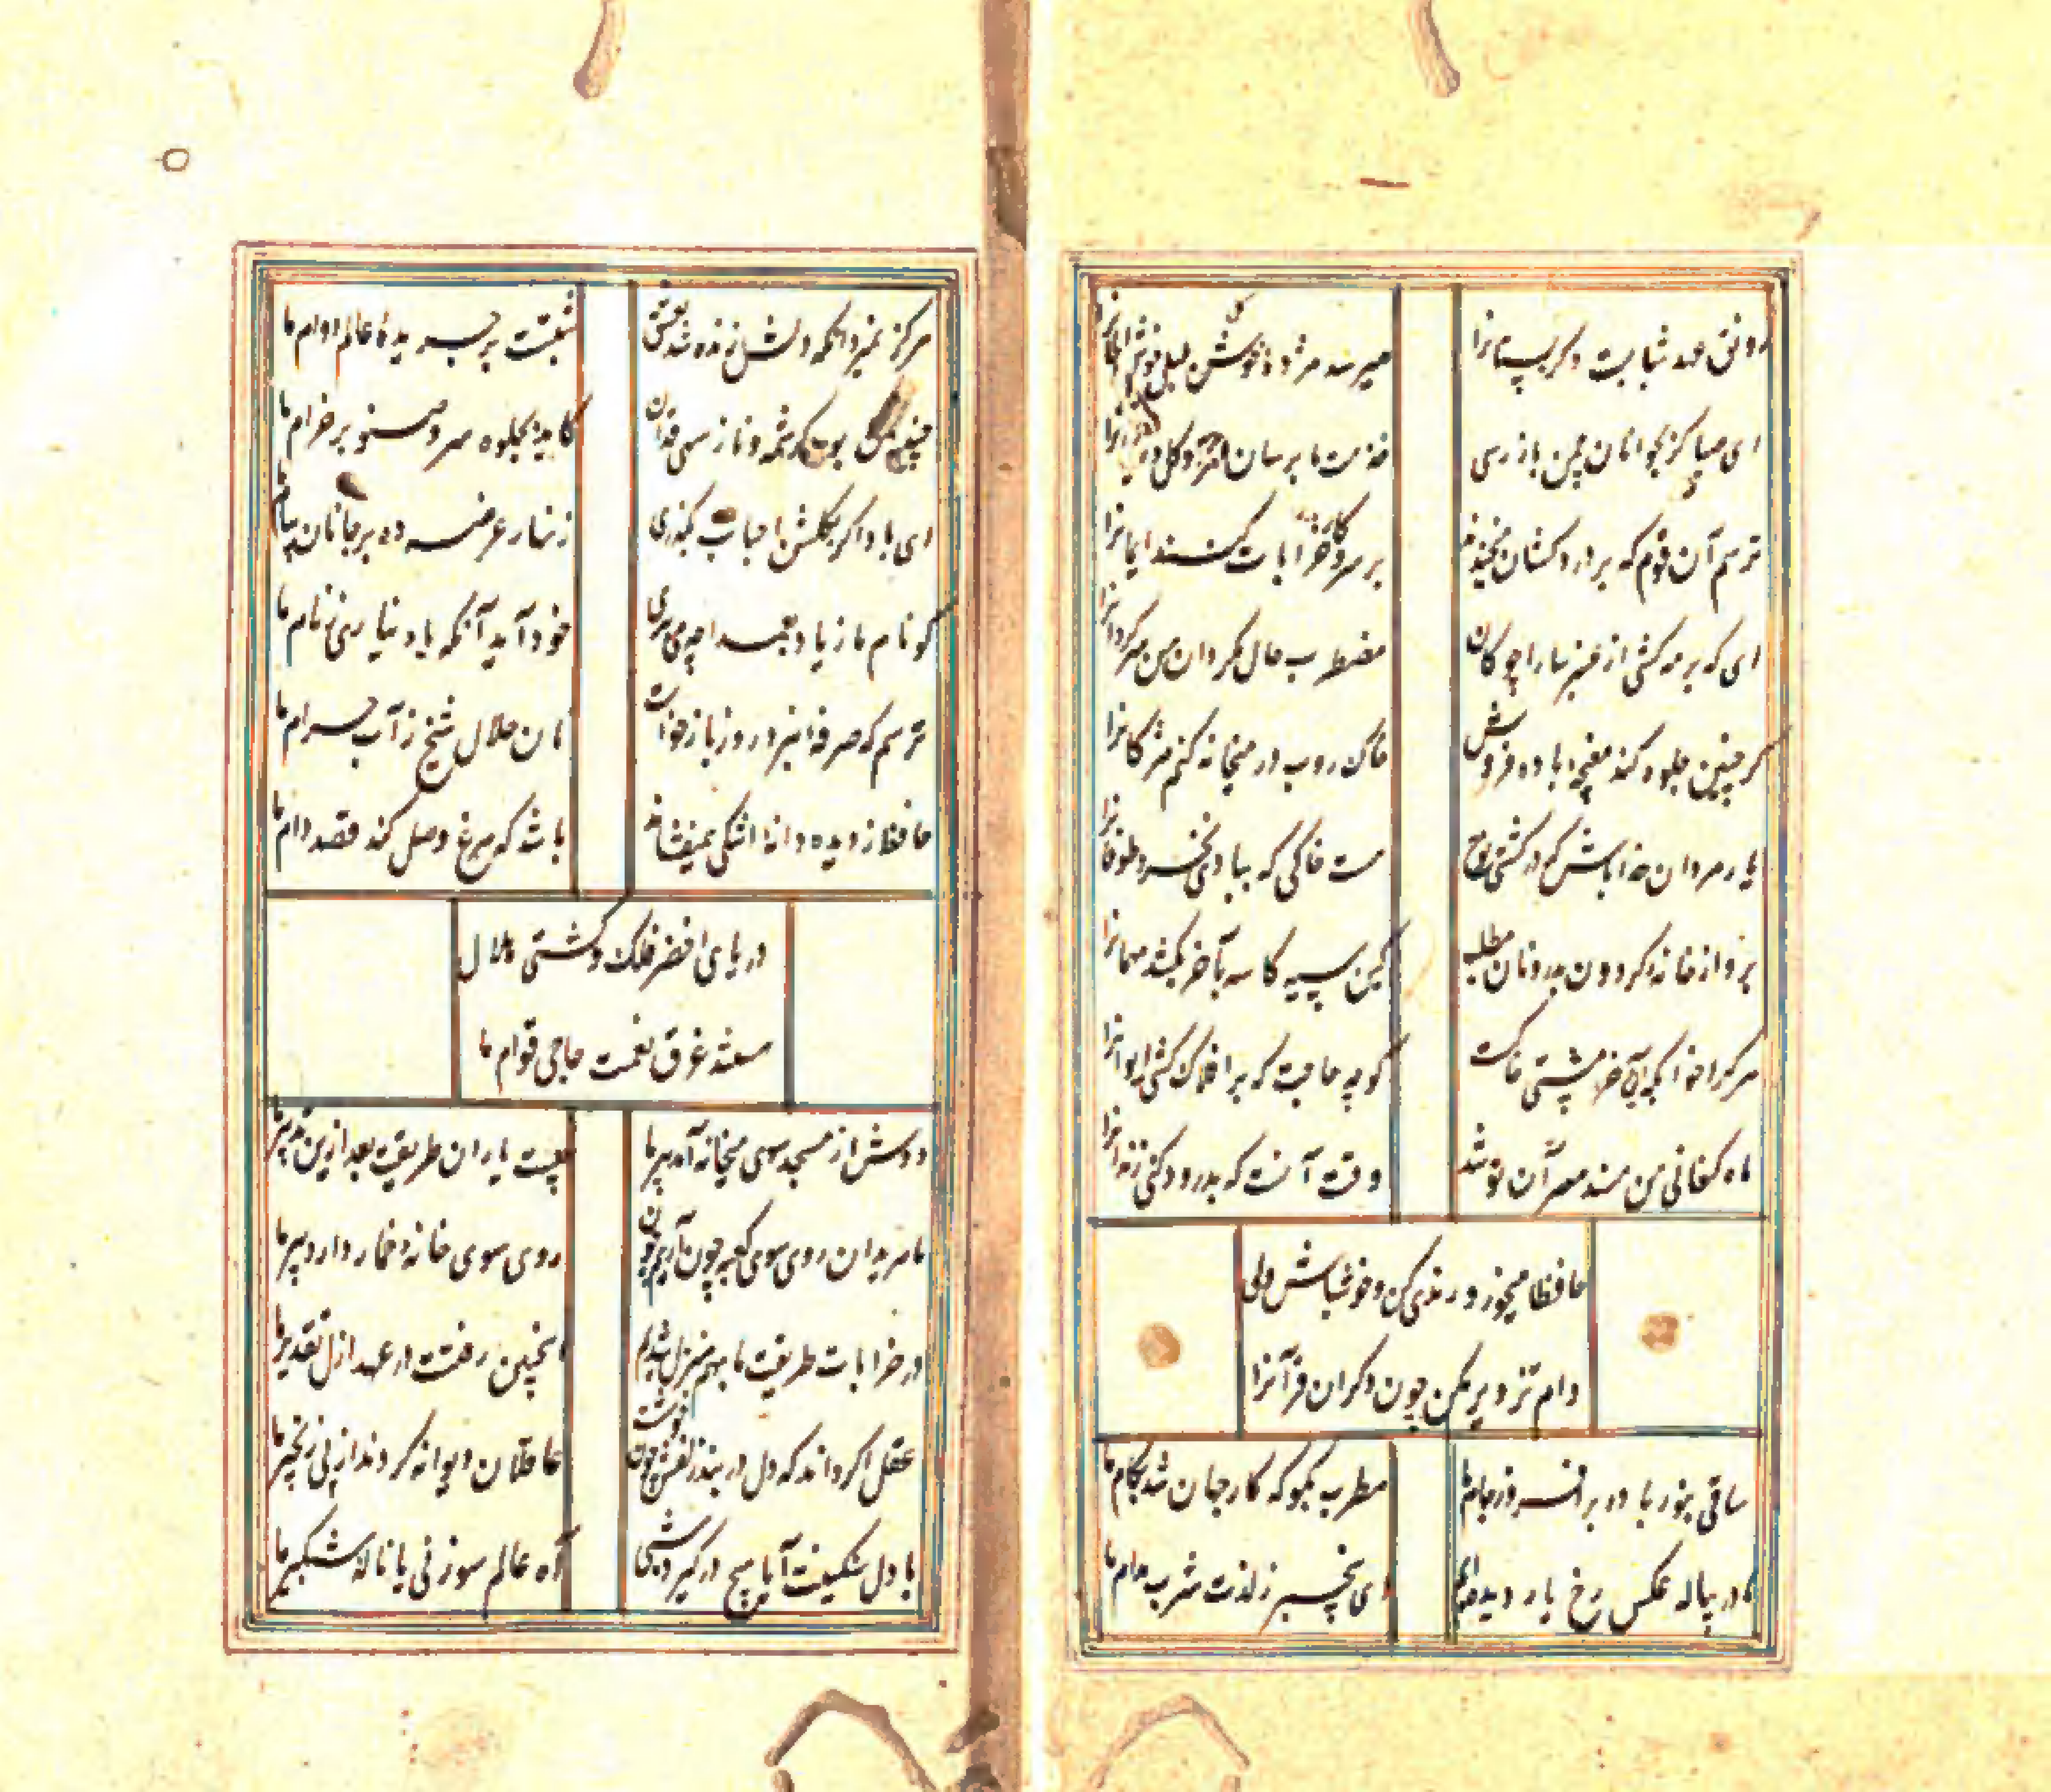 رونق عهد شبابست دگر بستانرا
میرسد مژدهٔ گل بلبل خوش الحانرا
ای صبا گر بجوانان چمن باز رسی
خدمت ما برسان سرو و گل و ریحانرا
ترسم آن قوم که بر دردکشان میخندند
بر سر کار خرابات کنند ایمانرا
ای که بر مه کشی از عنبر سارا چوکان
مضطرب حال مگردان من سرگردانرا
گر چنین جلوه کند مغبچهٔ باده فروش
خاک روب در میخانه کنم مژگانرا
یار مردان خدا باش که در کشتی نوح
هست خاکی که بآبی نخرد طوفانرا
برو از خانهٔ گردون بدر و نان مطلب
کین سیه کاسه بآخر بکشد مهمانرا
هر کرا خوابگه آخر مشتی خاکست
گو چه حاجت که بر افلاک کشی ایوانرا
ماه کنعانی من مسند مصر آن تو شد
وقت آنست که بدرود کنی زندانرا
حافظا میخور و رندی کن و خوشباش ولی
دام تزویر مکن چون دگران قرآنرا
ساقی بنور باده برافروز جام ما
مطرب بگو که کار جهان شد بکام ما
ما در پیاله عکس رخ یار دیده‌ایم
ای بیخبر ز لذت شرب مدام ما
هرگز نمیرد آنکه دلش زنده شد بعشق
ثبتست بر جریدهٔ عالم دوام ما
چندین بود کرشمه و ناز سهی قدان
کاید بجلوه سرو صنوبر خرام ما
ای باد اگر بگلشن احباب بگذری
زنهار عرضه ده بر جانان پیام ما
گو نام ما ز یاد بعمدا چه می بری
خود آید آنکه یاد نیاری ز نام ما
ترسم که صرفهٔ نبرد روز بازخواست
نان حلال شیخ ز آب حرام ما
حافظ ز دیده دانهٔ اشکی همیفشاند
باشد که مرغ وصل کند قصد دام ما
دریای اخضر فلک و کشتی هلال
هستند غرق نعمت حاجی قوام ما
دوش از مسجد سوی میخانه آمد پیر ما
چیست یاران طریقت بعد ازین تدبیر ما
ما مریدان روی سوی کعبه چون آریم چون
روی سوی خانهٔ خمار دارد پیر ما
در خرابات طریقت ما بهم منزل شدیم
کاینچنین رفتست در عهد ازل تقدیر ما
عقل اگر داند که دل در بند زلفش چون خوشست
عاقلان دیوانه گردند از پی زنجیر ما
با دل سنگینت آیا هیچ درگیرد شبی
آه عالم سوز نی یا نالهٔ شبگیر ما